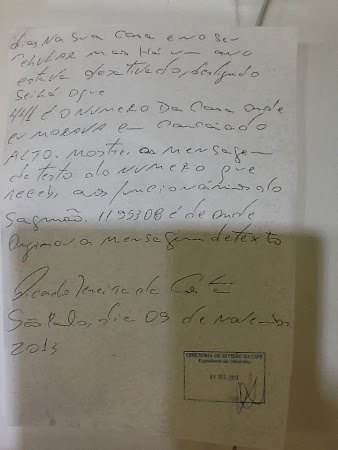 dias Na Sua Casa e no Seu
celular mas Há um ano
estava desativado, desligado
Sei lá o que
441 é O NUMERO Da Casa onde
eu MORAVA em do
ALTO. Mostrei as mensagem
de texto do NUMERO que
recebi aos funcionários do
Saguão. 119930B é de onde
Originou a Mensagem de texto
Ricardo Pereira da Costa
São Paulo, dia 09 de Novembro
2013
DIRETORIA DE DIVISÃO DA
DEZ 2013